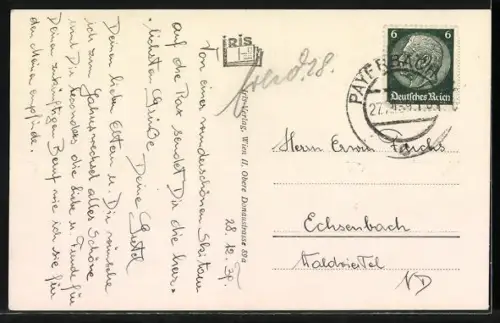 Von einer wunderschönen Skitour
auf die Rax sendet Dir die herz-
lichsten Grüße Deine Gretl
28.12.39.
Deinen lieben Eltern u. Dir wünsche
ich zum Jahreswechsel alles Schöne
und Dir besonders die Liebe u. Freude für
Deinen zukünftigen Beruf wie ich sie für
den Meinen empfinde.
IRIS
Iris-Verlag, Wien II, Obere Donaustrasse 89a
6 6
Deutsches Reich
PAYERBACH
Herrn Erwin
Echsenbach
Waldviertel
ND